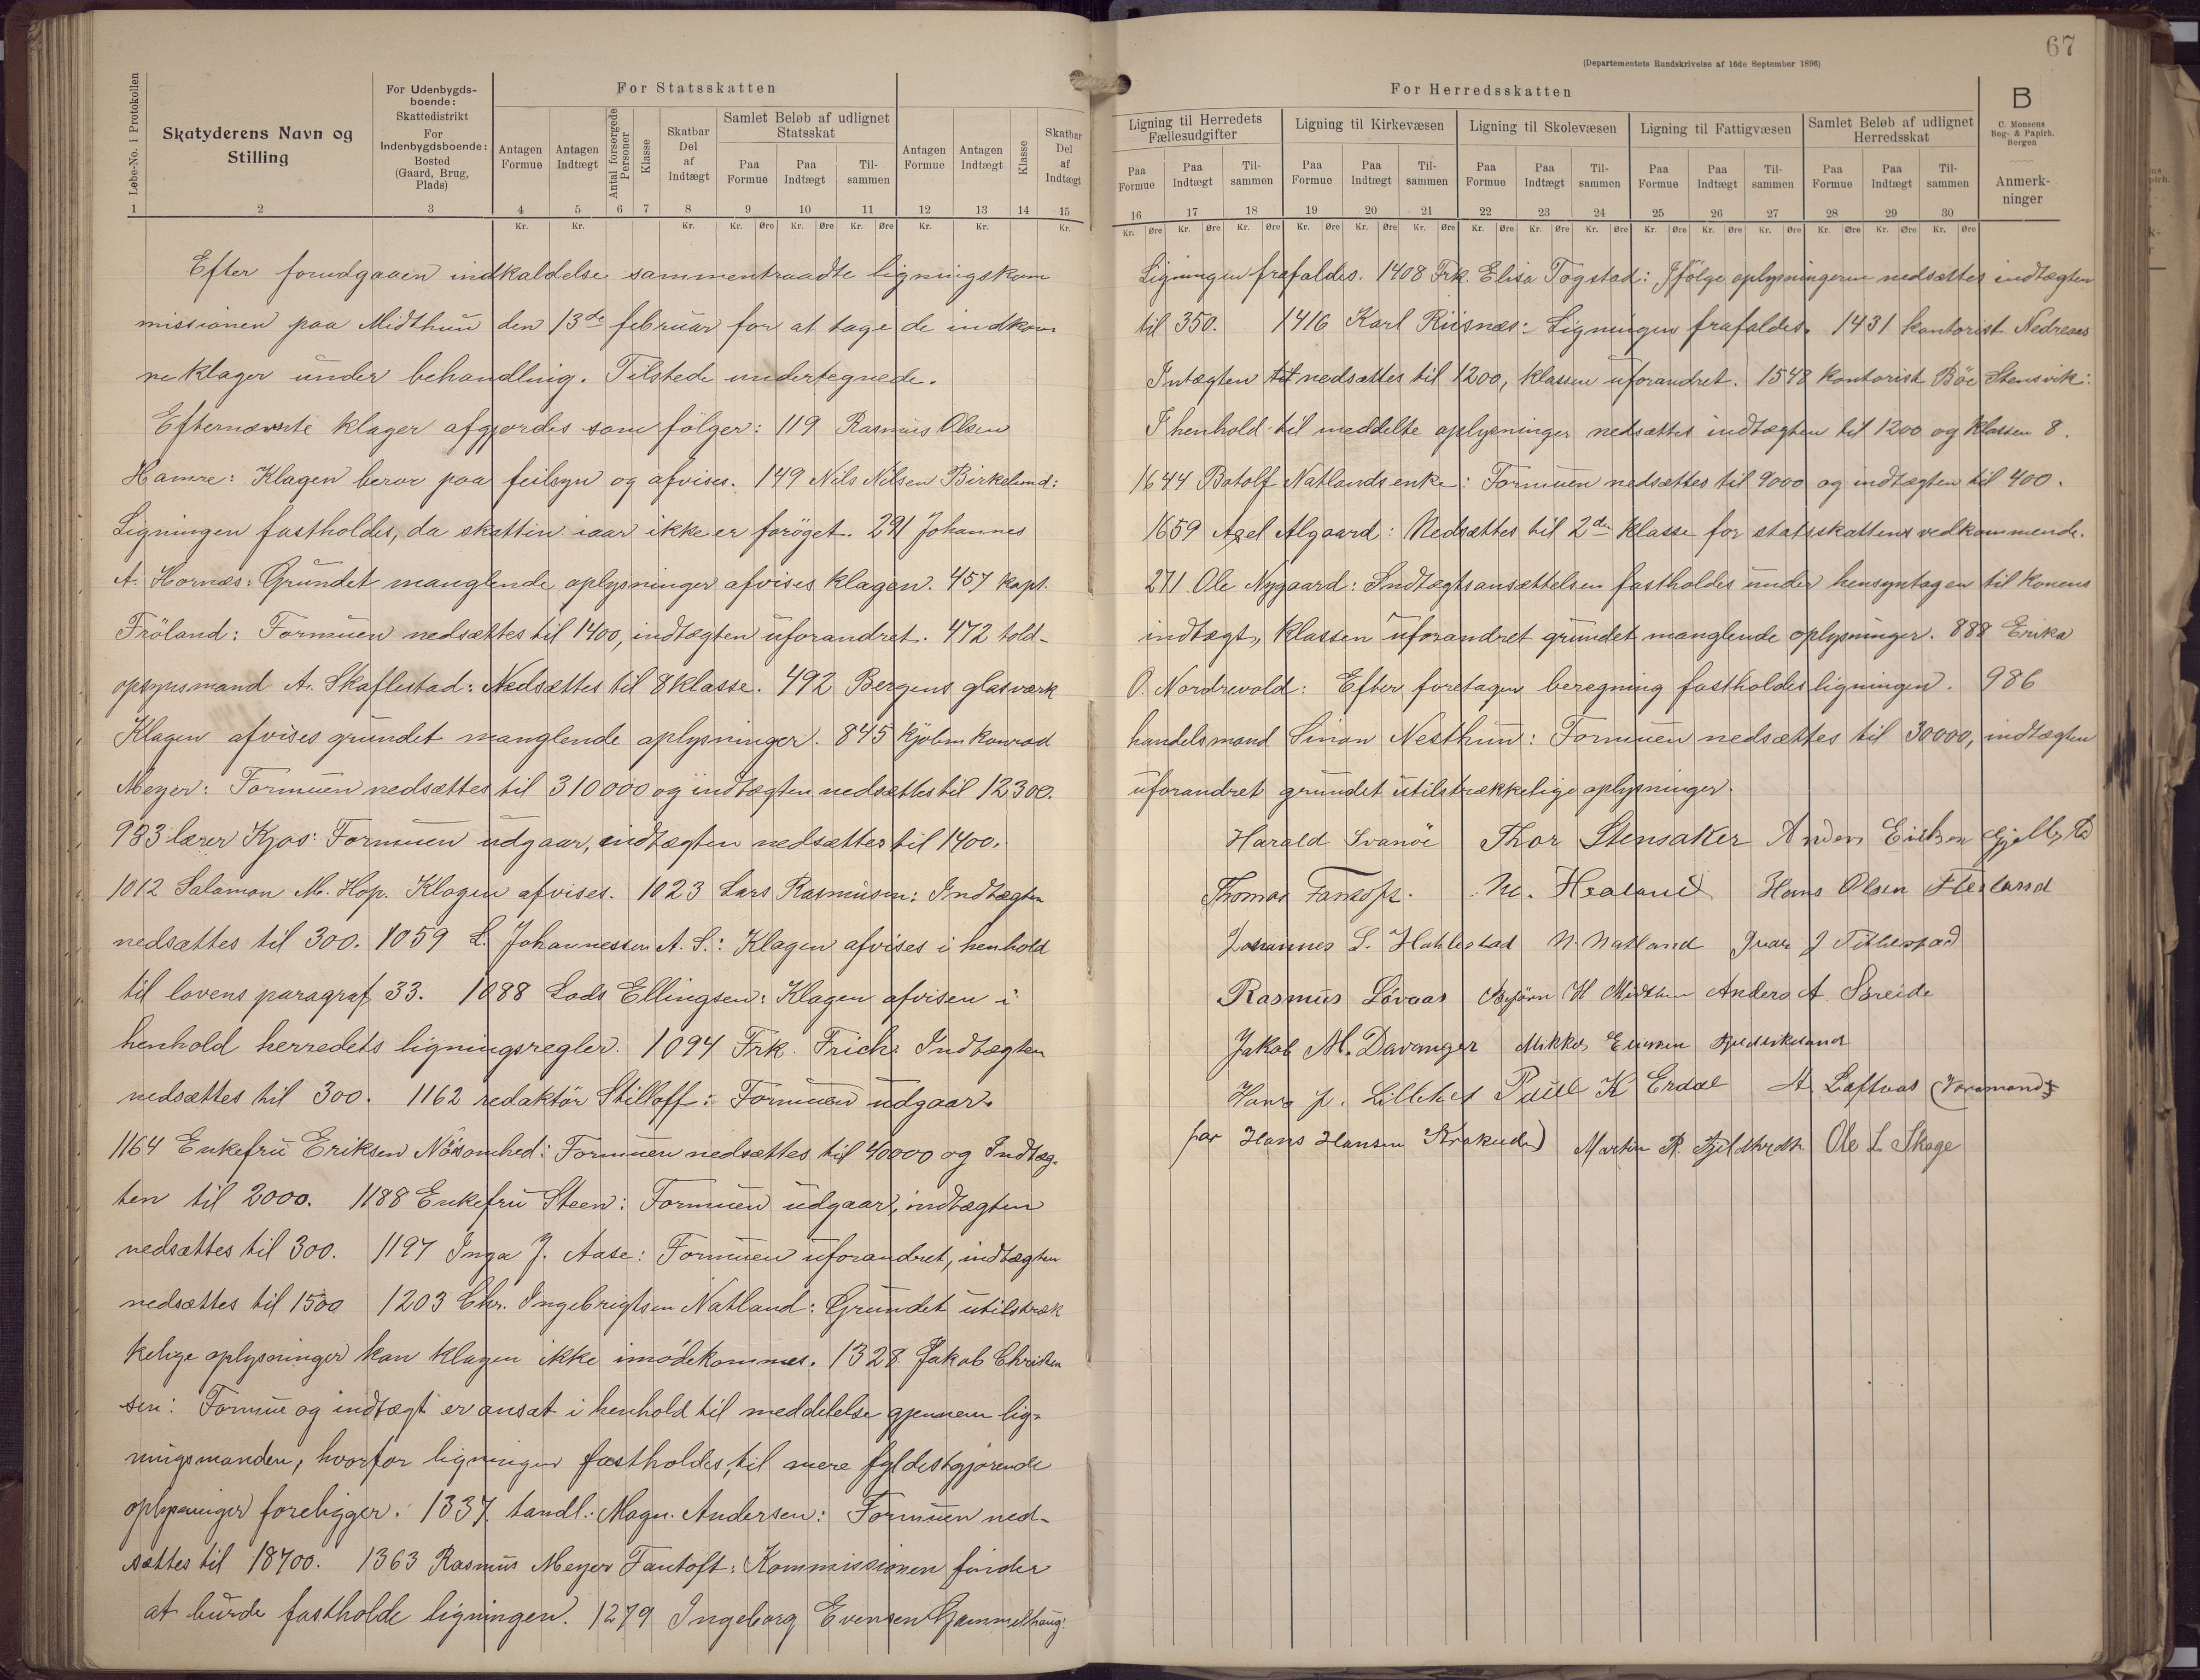 67
(Departementets Rundskrivelse af 16de September 1896)
Løbe-No. i Protokollen
Skatyderens Navn og Stilling
For Udenbygdsboende: Skattedistrikt
For Indenbygdsboende: Bosted (Gaard, Brug, Plads)
For Statsskatten
Antagen Formue
Antagen Indtægt
Antal forsørgede Personer
Klasse
Skatbar Del af Indtægt
Samlet Beløb af udlignet Statsskat
Paa Formue
Paa Indtægt
Tilsammen
Antagen Formue
Antagen Indtægt
Klasse
Skatbar Del af Indtægt
1 2 3 4 5 6 7 8 9 10 11 12 13 14 15
Kr. Kr. Kr. Kr. Øre Kr. Øre Kr. Øre Kr. Kr. Kr.
Efter forudgaaen indkaldelse sammentraadte ligningskom
missionen paa Midthun den 13de februar for at tage de indkom
ne klager under behandling. Tilstede undertegnede.
Efternævnte klager afgjordes som følger: 119 Rasmus Olsen
Hamre: Klagen beror paa feilsyn og afvises. 149 Nils Nilsen Birkelund:
Ligningen fastholdes, da skatten iaar ikke er forøget. 291 Johannes
A. Hornæs: Grundet manglende oplysninger afvises klagen. 457 kapt.
Fröland: Formuen nedsættes til 1400, indtægten uforandret. 472 told-
opsynsmand A. Skaflestad: Nedsættes til 8 klasse. 492 Bergens glasværk
Klagen afvises grundet manglende oplysninger. 845 kjøbm Konrad
Meyer: Formuen nedsættes til 310000 og indtægten nedsættes til 12300.
983 lærer Kjos: Formuen udgaar, indtægten nedsættes til 1400.
1012 Salamon M. Hop. Klagen afvises. 1023 Lars Rasmusen: Indtægten
nedsættes til 300. 1059 L. Johannessen A. S.: Klagen afvises i henhold
til lovens paragraf 33. 1088 Lods Ellingsen: Klagen afvisen i
henhold herredets ligningsregler. 1094 Frk. Frich: Indtægten
nedsættes til 300. 1162 redaktör Stilloff: Formuen udgaar.
1164 Enkefru Eriksen Nöisomhed: Formuen nedsættes til 40000 og Indtæg-
ten til 2000. 1188 Enkefru Steen: Formuen udgaar, indtægten
nedsættes til 300. 1197 Inga J. Aase: Formuen uforandret, indtægten
nedsættes til 1500 1203 Chr. Ingebrigtsen Natland: Grundet utilstræk
kelige oplysninger kan klagen ikke imödekommes. 1328 Jakob Christen
sen: Formue og indtægt er ansat i henhold til meddelelse gjennem lig-
ningsmanden, hvorfor ligningen fastholdes, til mere fyldestgjørende
oplysninger foreligger. 1337 tandl. Magn. Andersen: Formuen ned-
sættes til 18700. 1363 Rasmus Meyer Fantoft: Kommissionen finder
at burde fastholde ligningen. 1279 Ingeborg Evensen Gammelhaug:
For Herredsskatten
Ligning til Herredets Fællesudgifter
Ligning til Kirkevæsen
Ligning til Skolevæsen
Ligning til Fattigvæsen
Samlet Beløb af udlignet Herredsskat
B
C. Monsens Bog- & Papirh. Bergen
Paa Formue Paa Indtægt Tilsammen
Paa Formue Paa Indtægt Tilsammen
Paa Formue Paa Indtægt Tilsammen
Paa Formue Paa Indtægt Tilsammen
Paa Formue Paa Indtægt Tilsammen
Anmerkninger
16 17 18 19 20 21 22 23 24 25 26 27 28 29 30
Kr. Øre Kr. Øre Kr. Øre Kr. Øre Kr. Øre Kr. Øre Kr. Øre Kr. Øre Kr. Øre Kr. Øre Kr. Øre Kr. Øre Kr. Øre Kr. Øre Kr. Øre
Ligningen frafaldes. 1408 Frk. Elisa Togstad: Ifölge oplysningerne nedsættes indtægten
til 350. 1416 Karl Riisnæs: Ligningen frafaldes. 1431 kontorist Nedreaas
Intægten nedsættes til 1200, klassen uforandret. 1548 kontorist Böe Stensvik:
I henhold til meddelte oplysninger nedsættes indtægten til 1200 og klassen 8.
1644 Botolf Natlands enke: Formuen nedsættes til 9000 og indtægten til 400.
1659 Axel Algaard: Nedsættes til 2den klasse for statsskattens vedkommende.
271 Ole Nygaard: Indtægtsansættelsen fastholdes under hensyntagen til konens
indtægt, klassen uforandret grundet manglende oplysninger. 888 Erika
O. Nordrevold: Efter foretagen beregning fastholdes ligningen. 986
handelsmand Simon Nesthun: Formuen nedsættes til 30000, indtægten
uforandret grundet utilstrækkelige oplysninger.
Harald Svanöe Thor Stensaker Anders Eriksen
Thomas Fantoft. Hans Olsen Flesland
Johannes L. N. Natland Ivar J
Rasmus Løvaas Björn H Midthun Anders A. Søreide
Jakob M. Davanger Mikkel
Hans J. Lillehet Paul K Erdal A. Loftaas (Varamand
for Hans Hansen Krokeide) Martin R. Ole L. Skage